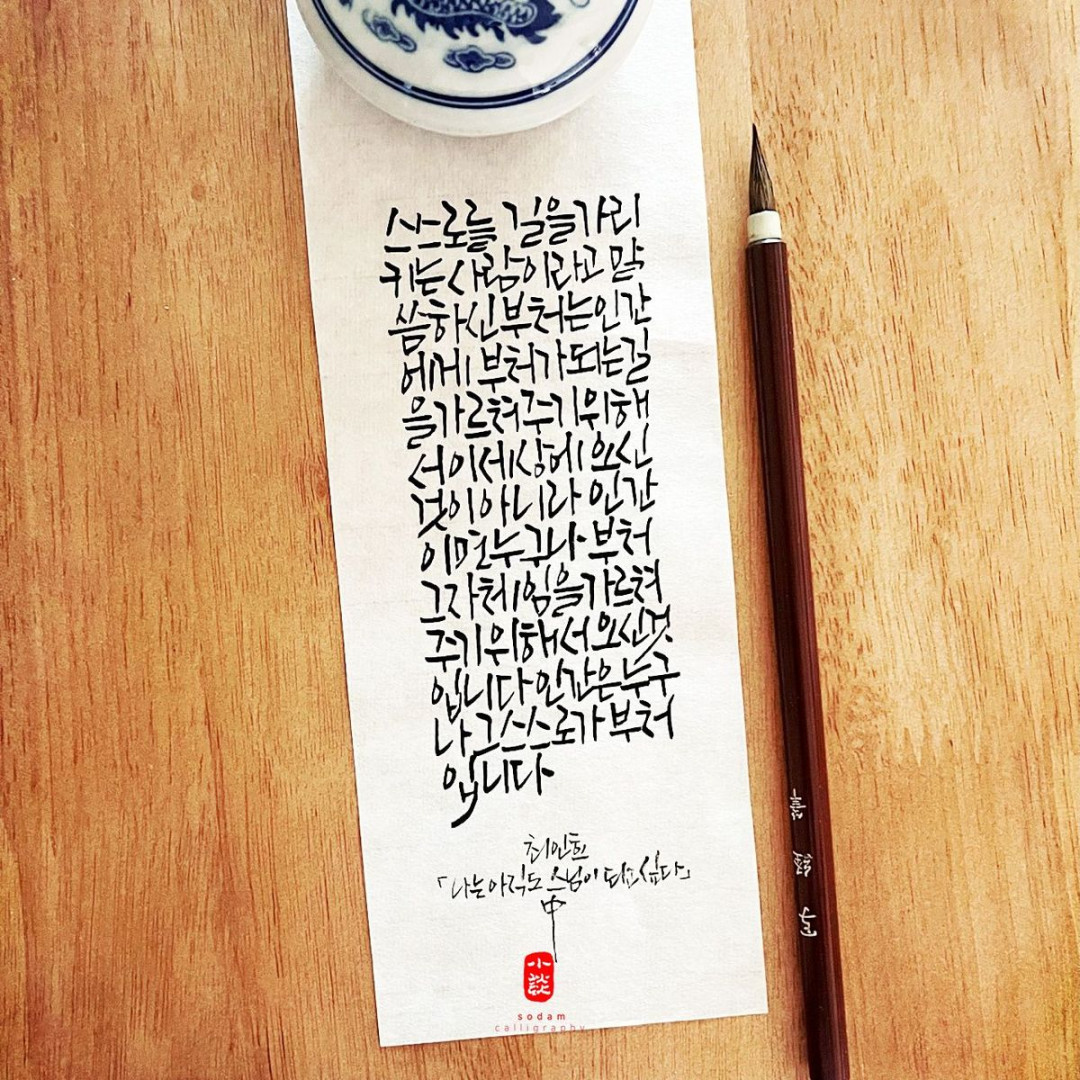 스스로를 길을가리
키는사람이라고말
씀하신부처는인간
에게부처가되는길
을가르쳐주기위해
서이세상에오신
것이아니라 인간
이면누구나 부처
그자체임을가르쳐
주기위해서오신것
입니다인간은누구
나그스스로가부처
입니다
최인호
「나는아직도 스님이 되고싶다」
中
小
sodam
calligraphy